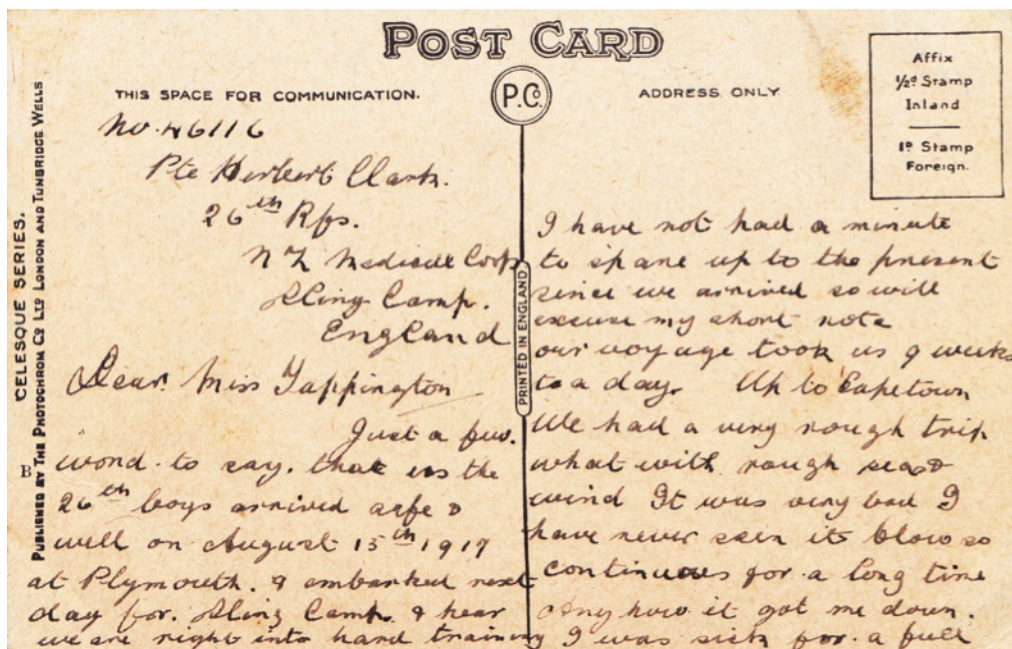 POST CARD
P.Co.
THIS SPACE FOR COMMUNICATION.
ADDRESS ONLY
Affix
½d Stamp
Inland
1d Stamp
Foreign.
CELESQUE SERIES.
PUBLISHED BY THE PHOTOCHROM CO LTD LONDON AND TUNBRIDGE WELLS
B
PRINTED IN ENGLAND
No. 46116
Pte Herbert Clark.
26th Rfs.
N Z Medical Corps
Sling Camp.
England
Dear Miss Tappington
Just a few.
word. to say. that us the
26th boys arrived safe &
well on August 15th 1917
at Plymouth. & embarked next
day for. Sling Camp. & hear
we are right into hard training
I have not had a minute
to spare up to the present
since we arrived so will
excuse my short note
our voyage took us 9 weeks
to a day. Up to Capetown
We had a very rough trip
what with rough seas &
wind It was very bad I
have never seen it blow so
continuous for a long time
Any how it got me down.
I was sick for a full